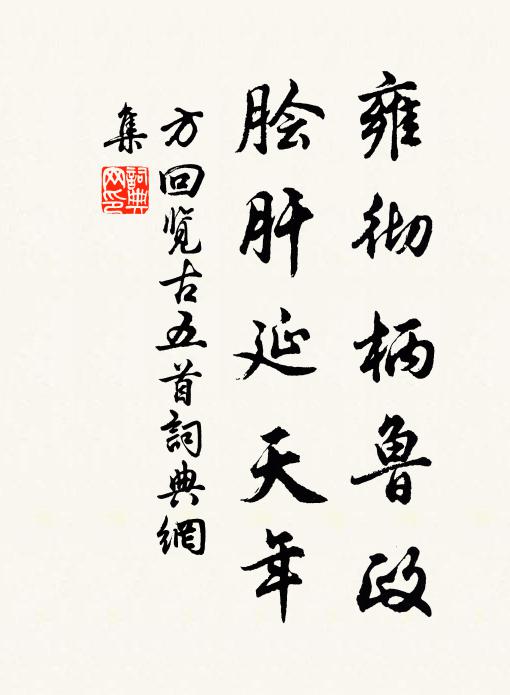 雍彻柄鲁政
脍肝延天年
方回览古五首詞典網
集
詞典網印